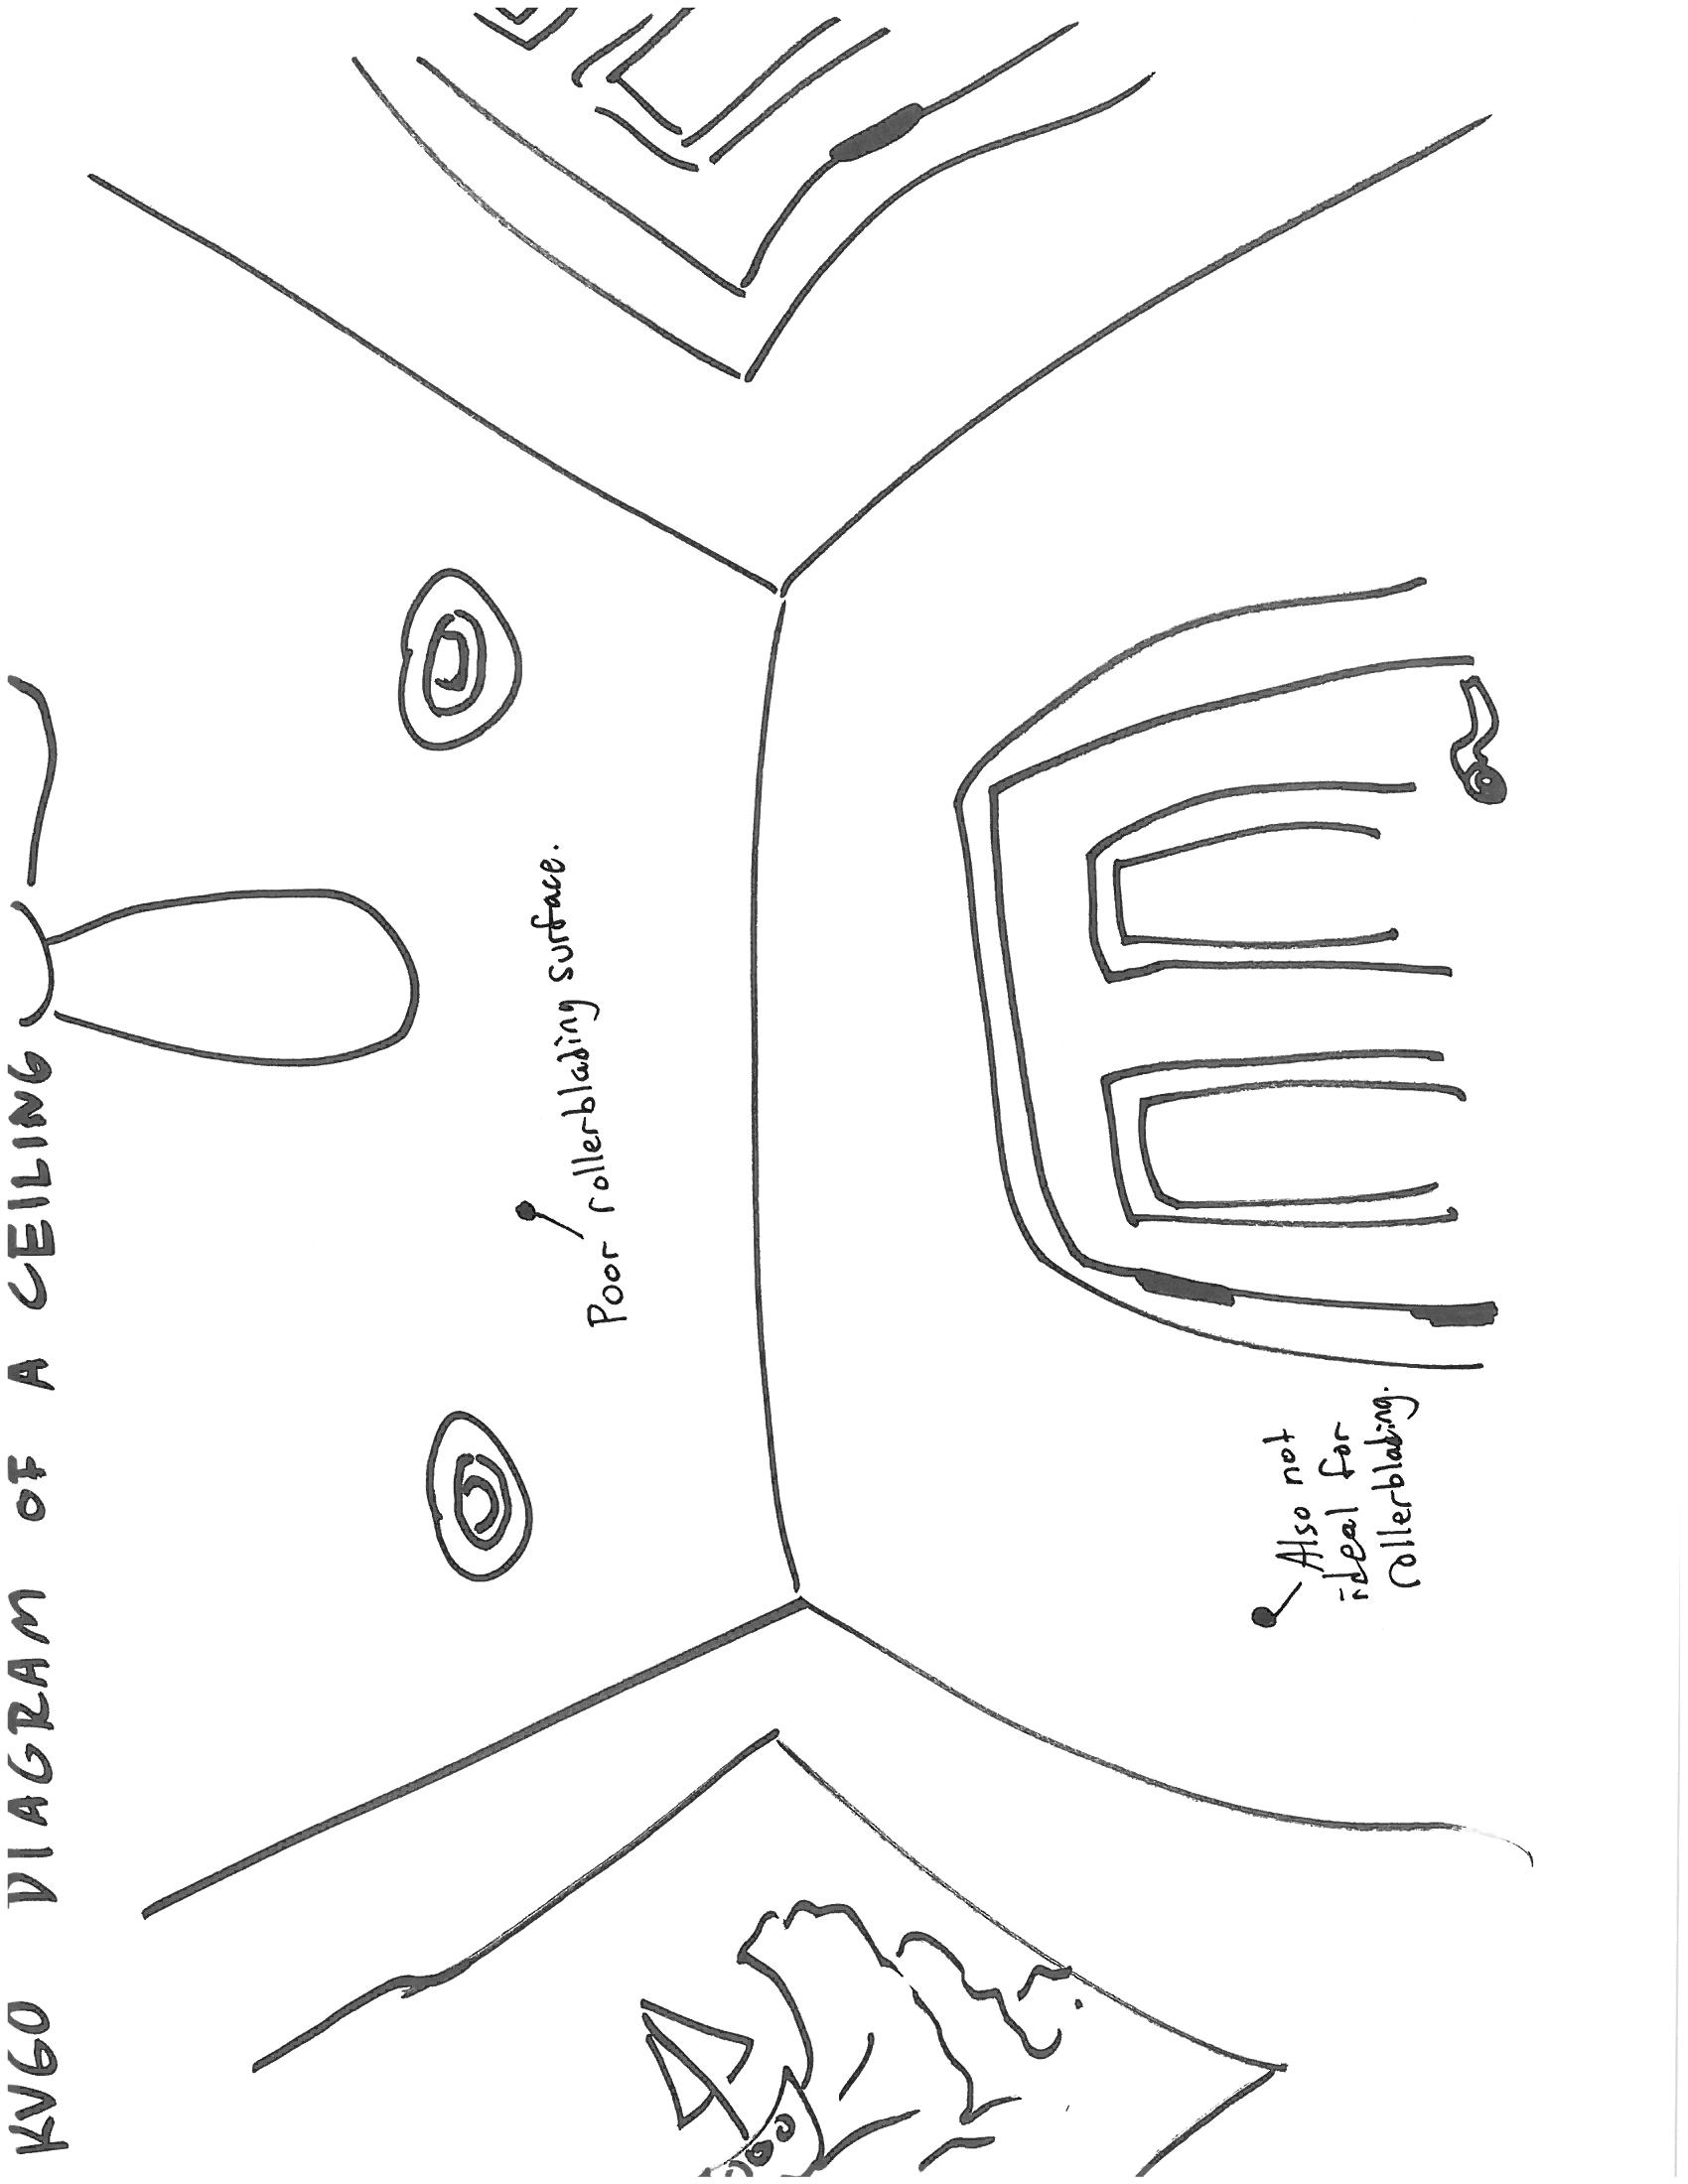 KV60 DIAGRAM OF A CEILING
Poor rollerblading surface.
Also not
ideal for
rollerblading.